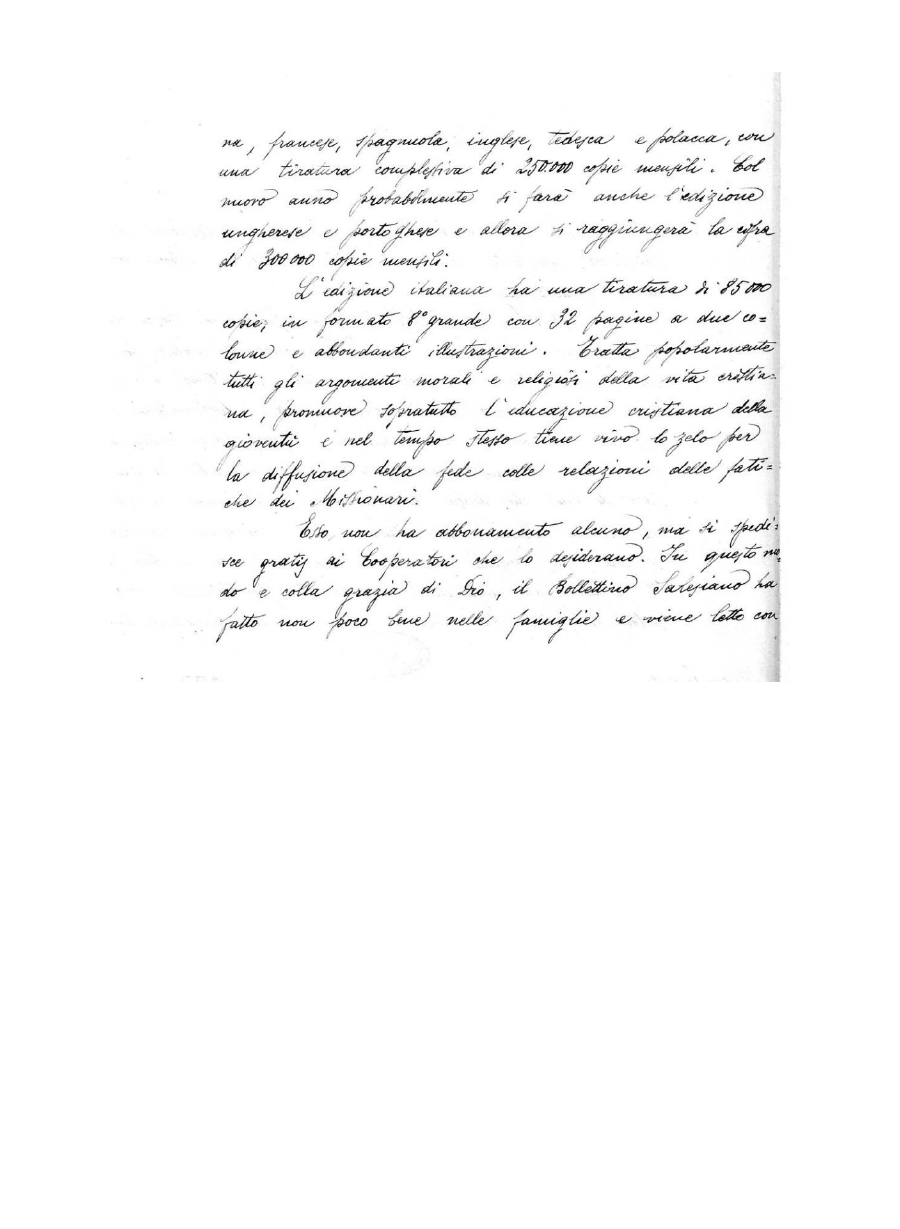 na, francese, spagnuola, inglese, tedesca e polacca, con
una tiratura complessiva di 250.000 copie mensili. Col
nuovo anno probabilmente si farà anche l'edizione
ungherese e portoghese e allora si raggiungerà la cifra
di 300000 copie mensili.
L'edizione italiana ha una tiratura di 85000
copie, in formato 8° grande con 32 pagine a due co=
lonne e abbondanti illustrazioni. Tratta popolarmente
tutti gli argomenti morali e religiosi della vita cristia=
na, promuove sopratutto l'educazione cristiana della
gioventù e nel tempo stesso tiene vivo lo zelo per
la diffusione della fede colle relazioni delle fati=
che dei Missionari.
Esso non ha abbonamento alcuno, ma si spedi=
sce gratis ai Cooperatori che lo desiderano. In questo mo=
do e colla grazia di Dio, il Bollettino Salesiano ha
fatto non poco bene nelle famiglie e viene letto con